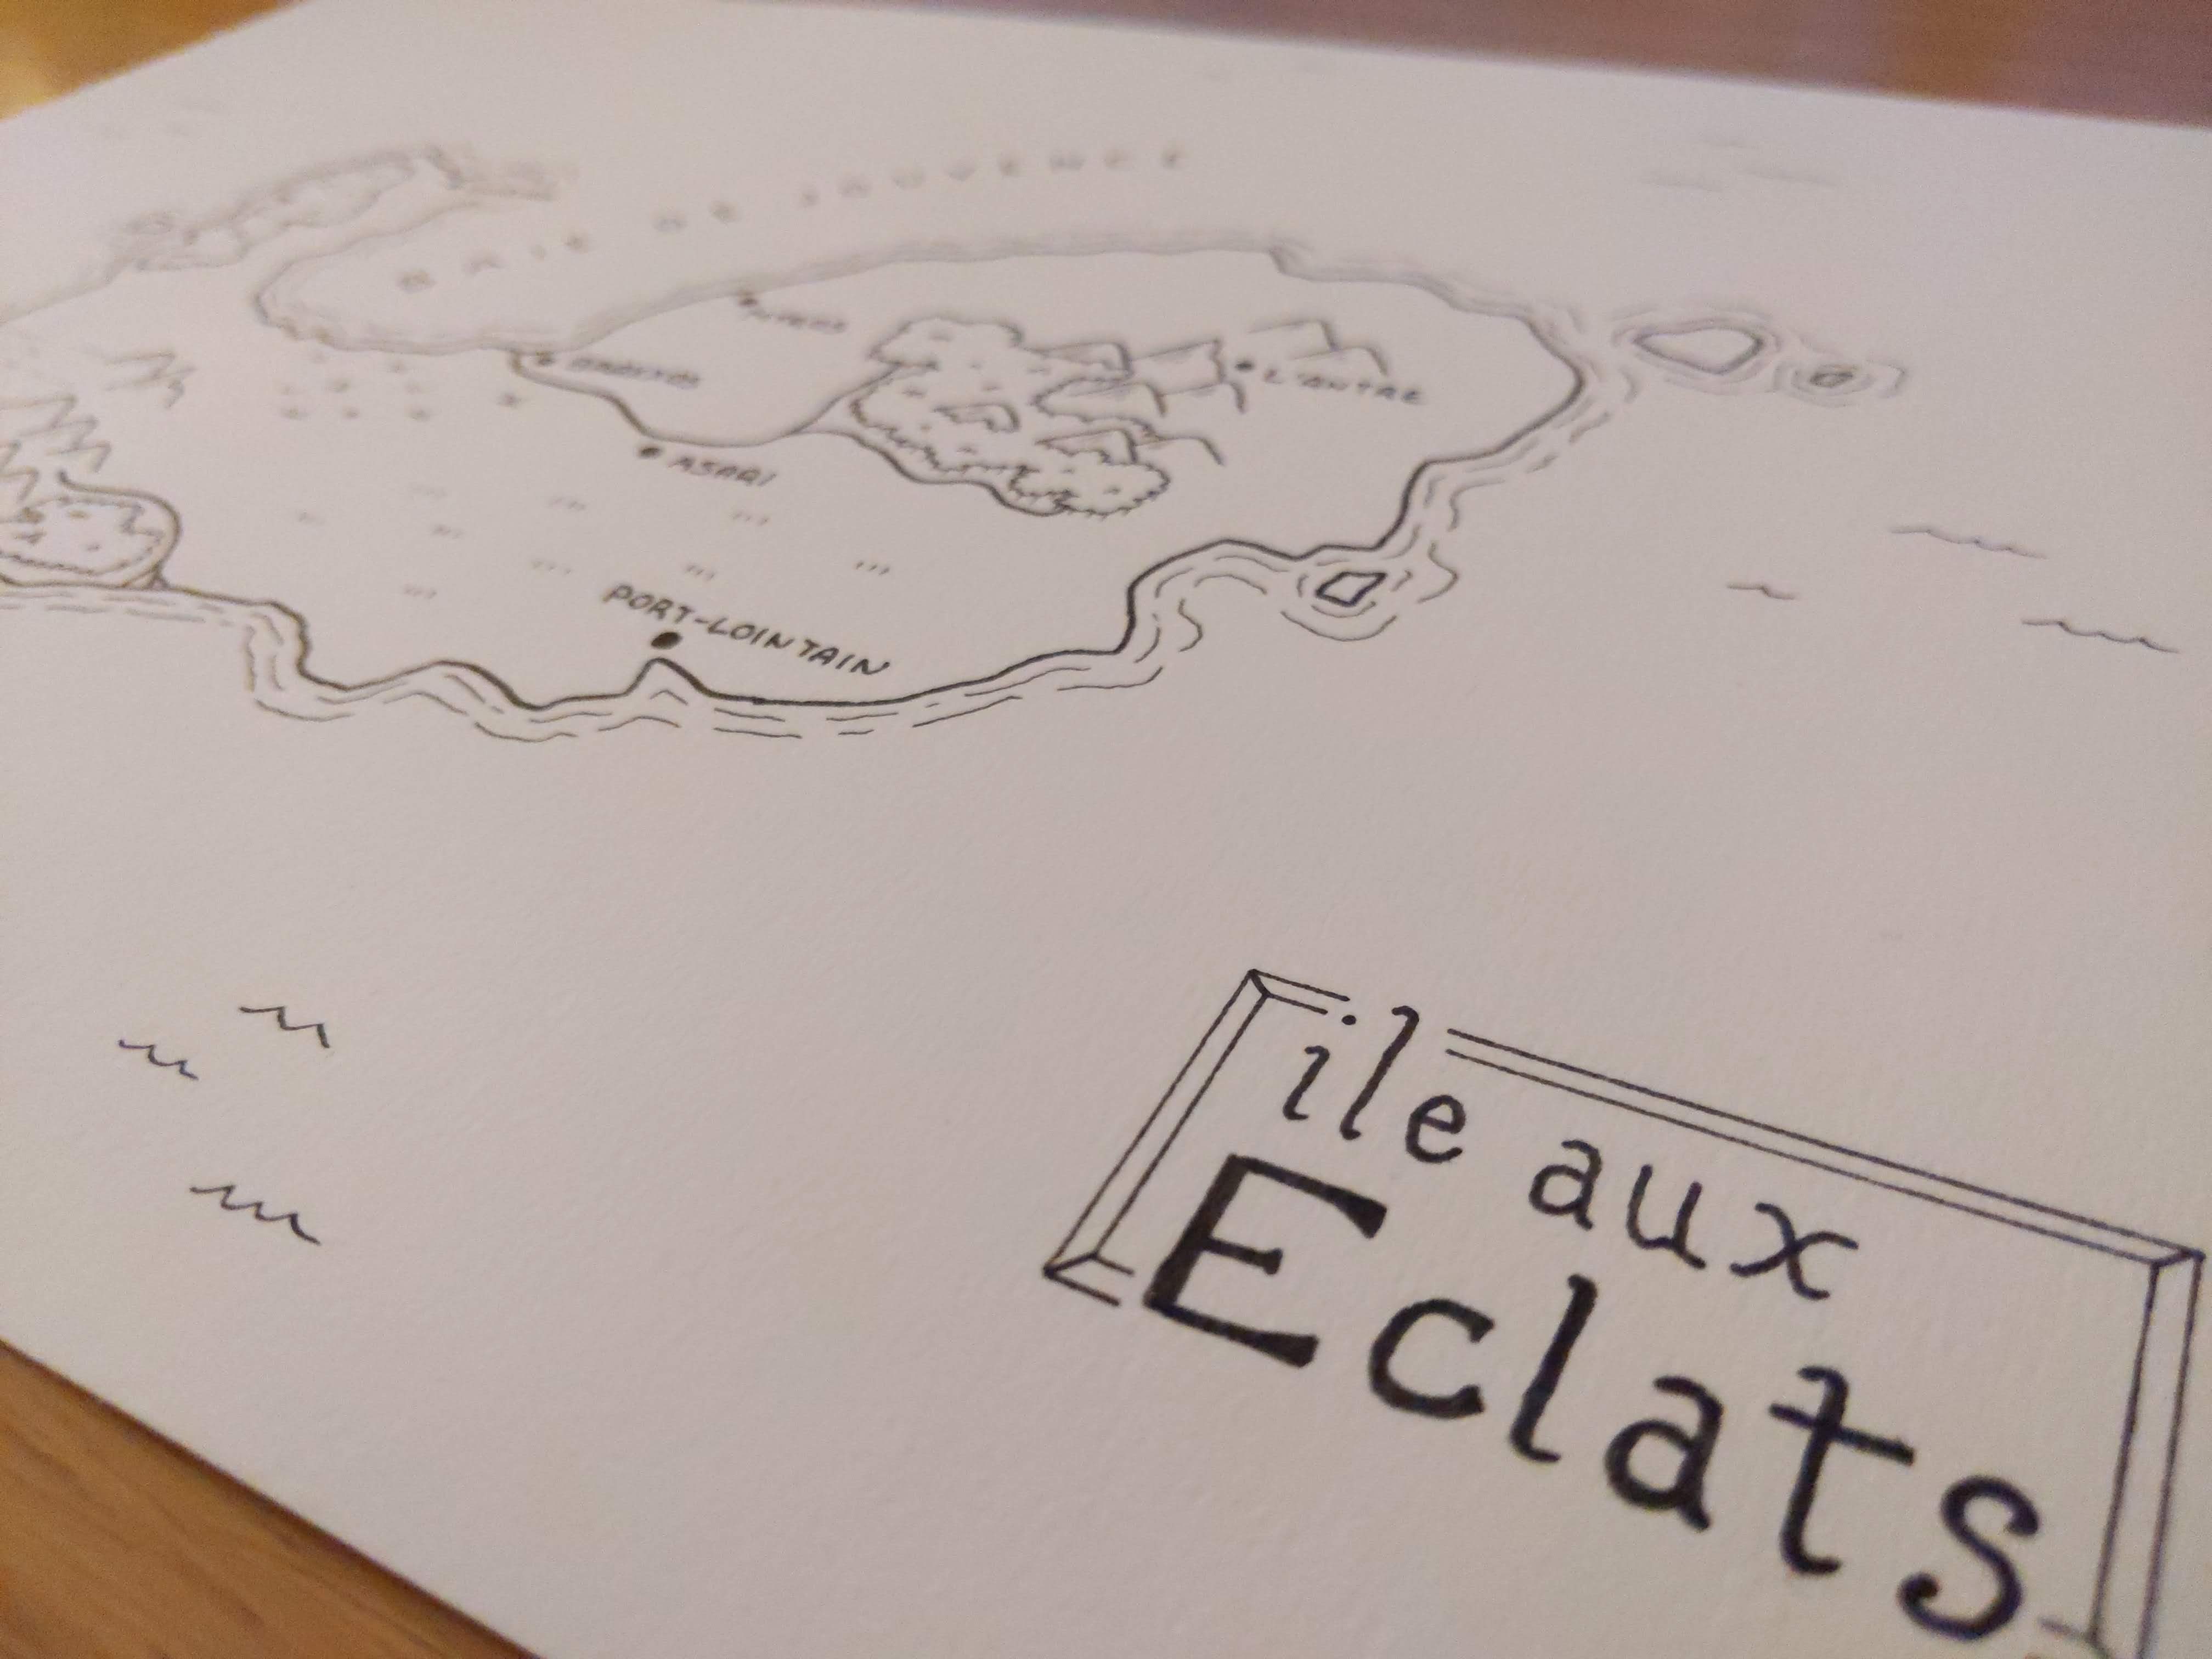 BAIE DE JOUVENCE
L'ANTRE
ASARI
PORT-LOINTAIN
ile aux
Eclats